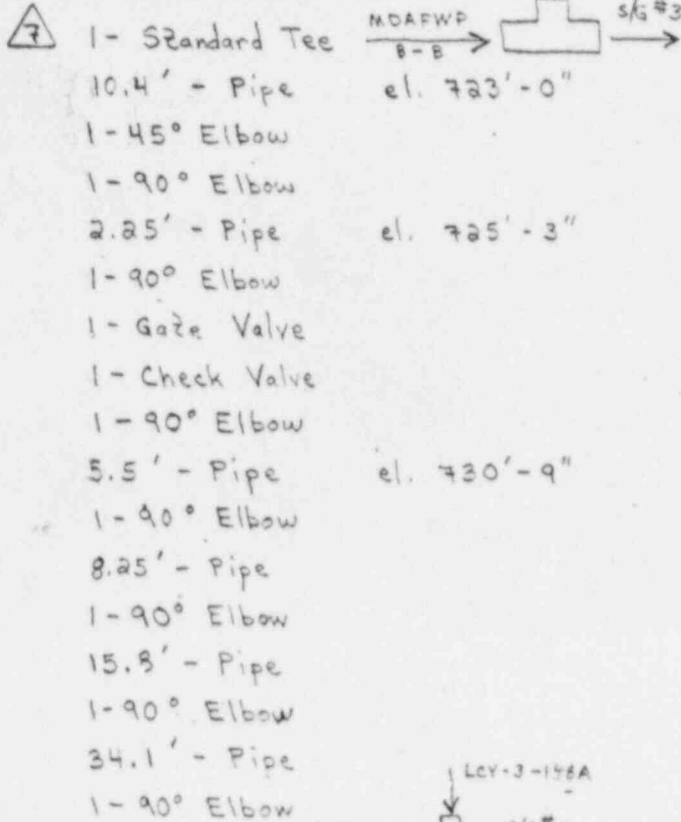 7 1- Standard Tee MDAFWP B-B S/G #3
10.4' - Pipe el. 723'-0"
1-45° Elbow
1-90° Elbow
2.25' - Pipe el. 725'-3"
1-90° Elbow
1- Gate Valve
1- Check Valve
1-90° Elbow
5.5' - Pipe el. 730'-9"
1-90° Elbow
8.25' - Pipe
1-90° Elbow
15.8' - Pipe
1-90° Elbow
34.1' - Pipe
LCV-3-148A
1-90° Elbow